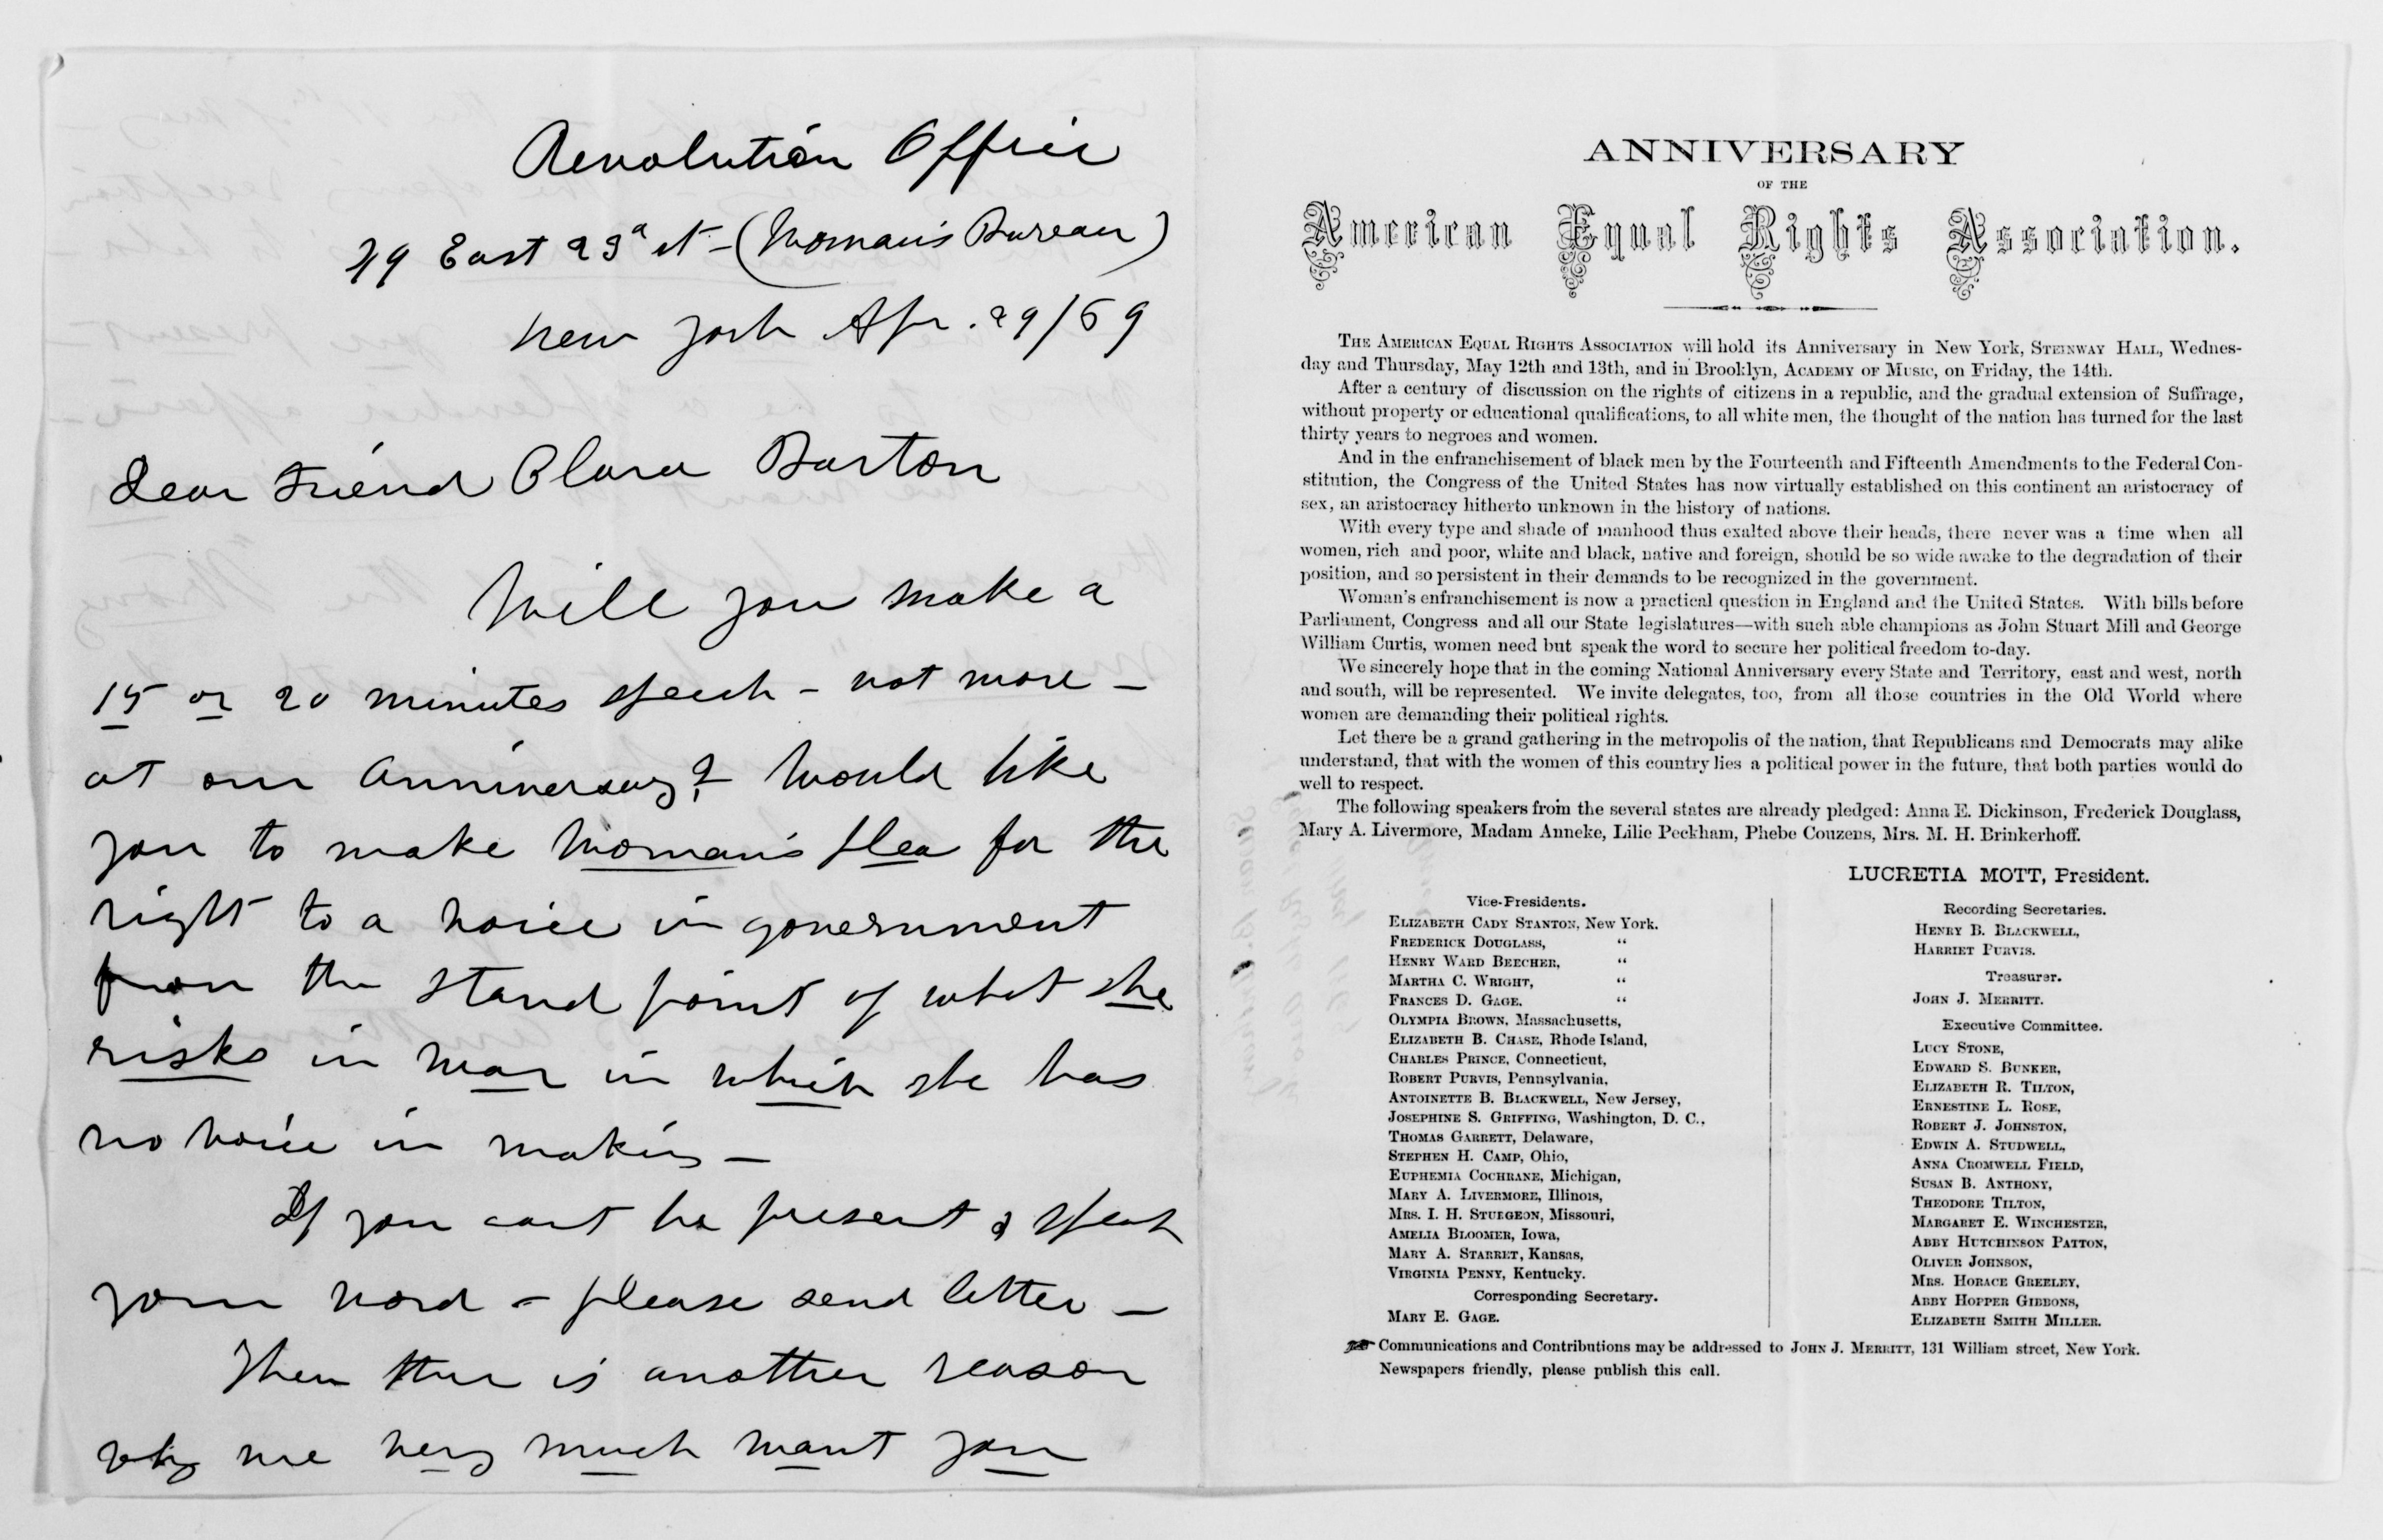 Revolution Office
49 East 23d st - (Woman's Bureau)
New York Apr. 29/69
Dear Friend Clara Barton
Will you make a
15 or 20 minutes speech - not more -
at our Anniversary? Would like
you to make Woman's plea for the
right to a voice in government
from the stand point of what she
risks in war in which she has
no voice in making -
If you cant be present & speak
your word - please send letter -
Then there is another reason
why we very much want you
ANNIVERSARY
OF THE
American Equal Rights Association.
THE AMERICAN EQUAL RIGHTS ASSOCIATION will hold its Anniversary in New York, STEINWAY HALL, Wednes-
day and Thursday, May 12th and 13th, and in Brooklyn, ACADEMY OF MUSIC, on Friday, the 14th.
After a century of discussion on the rights of citizens in a republic, and the gradual extension of Suffrage,
without property or educational qualifications, to all white men, the thought of the nation has turned for the last
thirty years to negroes and women.
And in the enfranchisement of black men by the Fourteenth and Fifteenth Amendments to the Federal Con-
stitution, the Congress of the United States has now virtually established on this continent an aristocracy of
sex, an aristocracy hitherto unknown in the history of nations.
With every type and shade of manhood thus exalted above their heads, there never was a time when all
women, rich and poor, white and black, native and foreign, should be so wide awake to the degradation of their
position, and so persistent in their demands to be recognized in the government.
Woman's enfranchisement is now a practical question in England and the United States. With bills before
Parliament, Congress and all our State legislatures—with such able champions as John Stuart Mill and George
William Curtis, women need but speak the word to secure her political freedom to-day.
We sincerely hope that in the coming National Anniversary every State and Territory, east and west, north
and south, will be represented. We invite delegates, too, from all those countries in the Old World where
women are demanding their political rights.
Let there be a grand gathering in the metropolis of the nation, that Republicans and Democrats may alike
understand, that with the women of this country lies a political power in the future, that both parties would do
well to respect.
The following speakers from the several states are already pledged: Anna E. Dickinson, Frederick Douglass,
Mary A. Livermore, Madam Anneke, Lilie Peckham, Phebe Couzens, Mrs. M. H. Brinkerhoff.
LUCRETIA MOTT, President.
Vice-Presidents.
ELIZABETH CADY STANTON, New York.
FREDERICK DOUGLASS, "
HENRY WARD BEECHER, "
MARTHA C. WRIGHT, "
FRANCES D. GAGE, "
OLYMPIA BROWN, Massachusetts,
ELIZABETH B. CHASE, Rhode Island,
CHARLES PRINCE, Connecticut,
ROBERT PURVIS, Pennsylvania,
ANTOINETTE B. BLACKWELL, New Jersey,
JOSEPHINE S. GRIFFING, Washington, D. C.,
THOMAS GARRETT, Delaware,
STEPHEN H. CAMP, Ohio,
EUPHEMIA COCHRANE, Michigan,
MARY A. LIVERMORE, Illinois,
MRS. I. H. STURGEON, Missouri,
AMELIA BLOOMER, Iowa,
MARY A. STARRET, Kansas,
VIRGINIA PENNY, Kentucky.
Corresponding Secretary.
MARY E. GAGE.
Recording Secretaries.
HENRY B. BLACKWELL,
HARRIET PURVIS.
Treasurer.
JOHN J. MERRITT.
Executive Committee.
LUCY STONE,
EDWARD S. BUNKER,
ELIZABETH R. TILTON,
ERNESTINE L. ROSE,
ROBERT J. JOHNSTON,
EDWIN A. STUDWELL,
ANNA CROMWELL FIELD,
SUSAN B. ANTHONY,
THEODORE TILTON,
MARGARET E. WINCHESTER,
ABBY HUTCHINSON PATTON,
OLIVER JOHNSON,
MRS. HORACE GREELEY,
ABBY HOPPER GIBBONS,
ELIZABETH SMITH MILLER.
Communications and Contributions may be addressed to JOHN J. MERRITT, 131 William street, New York.
Newspapers friendly, please publish this call.